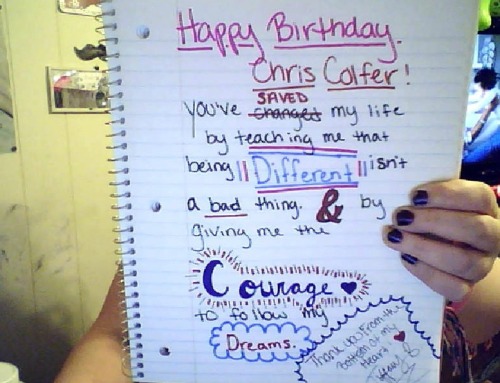 Happy Birthday.
Chris Colfer!
SAVED
you've changed my life
by teaching me that
being "Different" isn't
a bad thing. & by
giving me the
Courage
to follow my
Dreams.
Thank you from the
bottom of my
Heart!